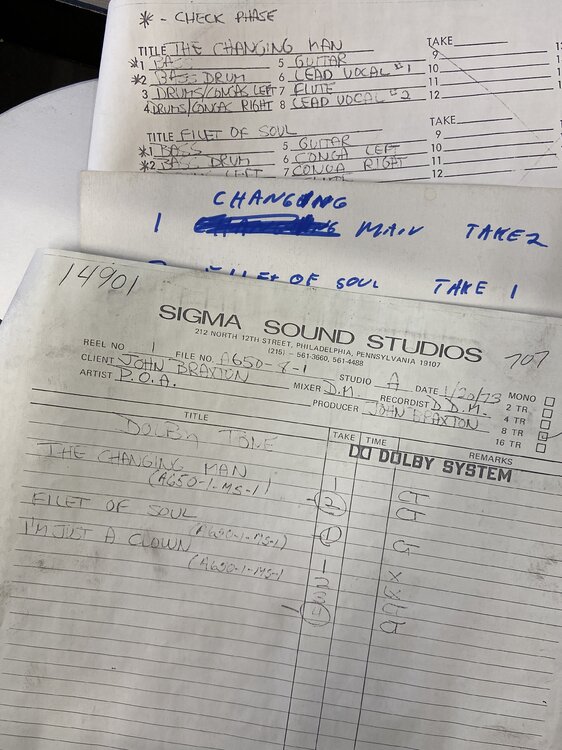 * - CHECK PHASE
TITLE THE CHANGING MAN TAKE
*1 BASS 5 GUITAR 9
*2 BASS DRUM 6 LEAD VOCAL #1 10
3 DRUMS/CONGAS LEFT 7 FLUTE 11
4 DRUMS/CONGAS RIGHT 8 LEAD VOCAL #2 12
TITLE FILET OF SOUL TAKE
*1 BASS 5 GUITAR 9
*2 BASS DRUM 6 CONGA LEFT 10
LEFT 7 CONGA RIGHT 11
12
CHANGING
1 MAIN TAKE 2
FILLET OF SOUL TAKE 1
14901
SIGMA SOUND STUDIOS
212 NORTH 12TH STREET, PHILADELPHIA, PENNSYLVANIA 19107
(215) - 561-3660, 561-4488
707
REEL NO 1 FILE NO. A650-8-1 STUDIO A DATE 1/20/73 MONO
CLIENT JOHN BRAXTON MIXER D.M. RECORDIST D.M. 2 TR
ARTIST P.O.A. PRODUCER JOHN BRAXTON 4 TR
8 TR
16 TR
TITLE TAKE TIME REMARKS
DOLBY TONE DOLBY SYSTEM
THE CHANGING MAN 1 CT
(A650-1-MS-1) 2 CT
FILET OF SOUL
(A650-1-MS-1) 1 CT
I'M JUST A CLOWN 1 X
(A650-1-MS-1 2